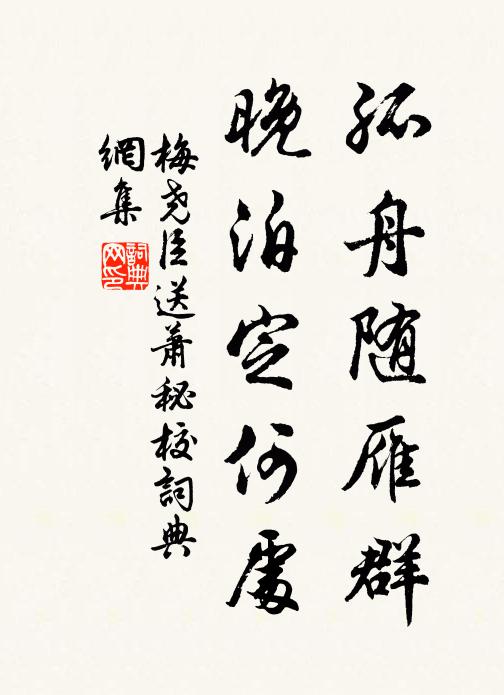 孤舟随雁群
晚泊定何處
梅尧臣送蕭秘校詞典
網集
詞典
网印